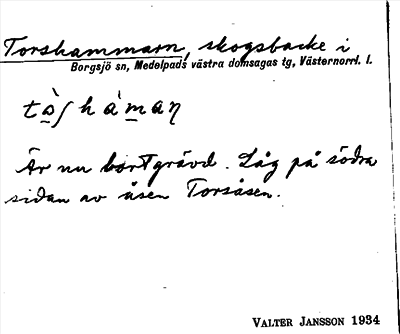 Torshammarn, skogsbacke i
Borgsjö sn, Medelpads västra domsagas tg, Västernorrl. l.
Är nu bortgrävd. Låg på södra
sidan av åsen Torsåsen.
VALTER JANSSON 1934